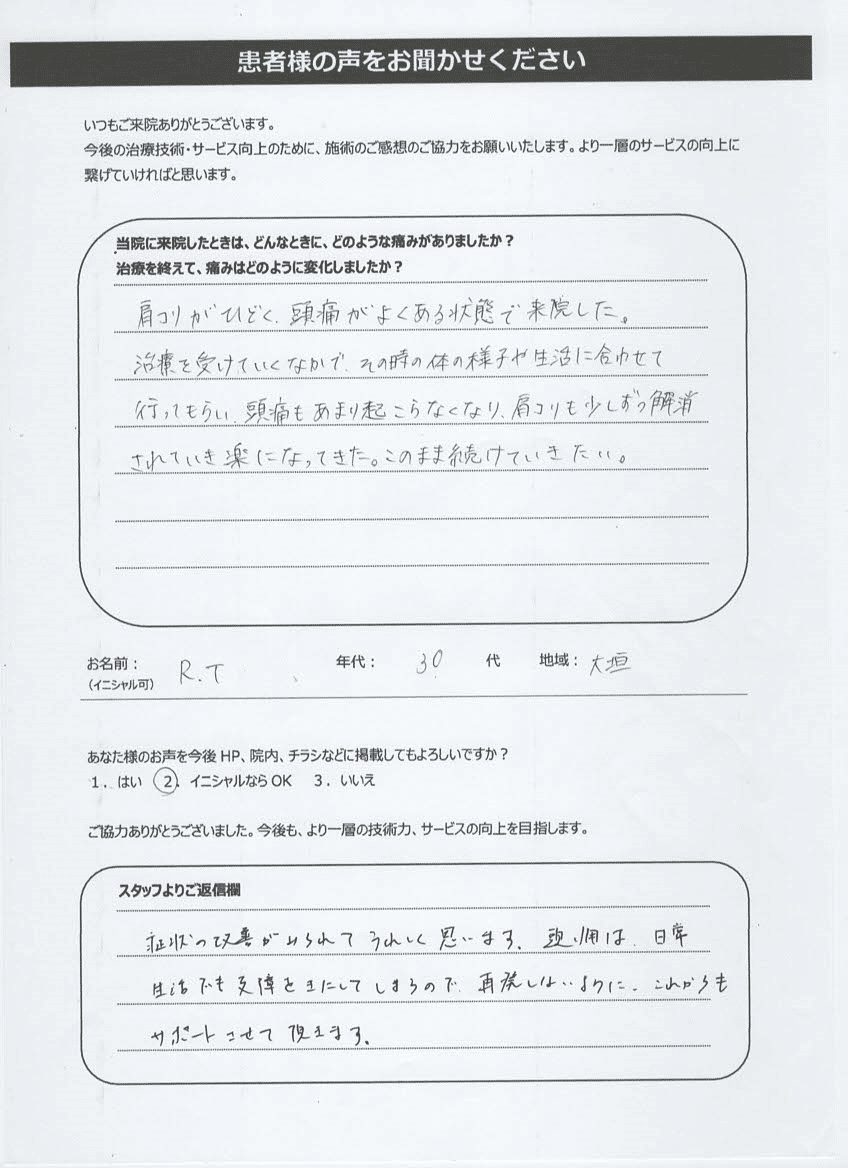 患者様の声をお聞かせください
いつもご来院ありがとうございます。
今後の治療技術・サービス向上のために、施術のご感想のご協力をお願いいたします。より一層のサービスの向上に
繋げていければと思います。
当院に来院したときは、どんなときに、どのような痛みがありましたか？
治療を終えて、痛みはどのように変化しましたか？
肩コリがひどく、頭痛がよくある状態で来院した。
治療を受けていくなかで、その時の体の様子や生活に合わせて
行ってもらい、頭痛もあまり起こらなくなり、肩コリも少しずつ解消
されていき楽になってきた。このまま続けていきたい。
お名前： R.T 年代： 30 代 地域： 大垣
（イニシャル可）
あなた様のお声を今後 HP、院内、チラシなどに掲載してもよろしいですか？
１．はい ２．イニシャルなら OK ３．いいえ
ご協力ありがとうございました。今後も、より一層の技術力、サービスの向上を目指します。
スタッフよりご返信欄
症状の改善がみられてうれしく思います。頭痛は、日常
生活でも支障をきにしてしまうので、再発しないように、これからも
サポートさせて頂きます。